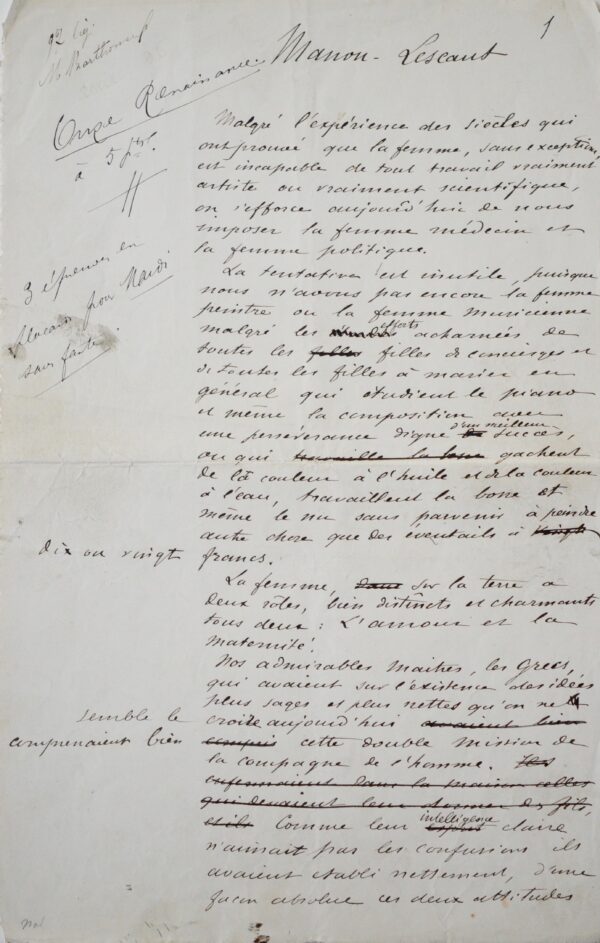 1
Manon - Lescaut
Onze Renaissance.
à 5 ptrs.
3 épreuves en
placard pour Mardi
sans faute.
Malgré l'expérience des siècles qui
ont prouvé que la femme, sans exception,
est incapable de tout travail vraiment
artiste ou vraiment scientifique,
on s'efforce aujourd'hui de nous
imposer la femme médecin et
la femme politique.
La tentative est inutile, puisque
nous n'avons pas encore la femme
peintre ou la femme musicienne
malgré les efforts acharnés de
toutes les filles filles de concierges et
de toutes les filles à marier en
général qui étudient le piano
et même la composition avec
une persévérance digne de d'un meilleur succès,
ou qui travaille la terre gachent
de la couleur à l'huile et de la couleur
à l'eau, travaillent la bosse et
même le nu sans parvenir à peindre
autre chose que des éventails à vingt
dix ou vingt francs.
La femme, dans sur la terre a
deux rôles, bien distincts et charmants
tous deux : L'amour et la
maternité.
Nos admirables Maitres, les Grecs,
qui avaient sur l'existence des idées
plus sages et plus nettes qu'on ne
semble le croire aujourd'hui avaient bien
comprenaient bien compris cette double mission de
la compagne de l'homme. Ils
enfermaient dans la maison celles
qui devaient leur donner des fils,
et ils Comme leur esprit intelligence claire
n'aimait pas les confusions ils
avaient établi nettement, d'une
façon absolue ces deux attitudes